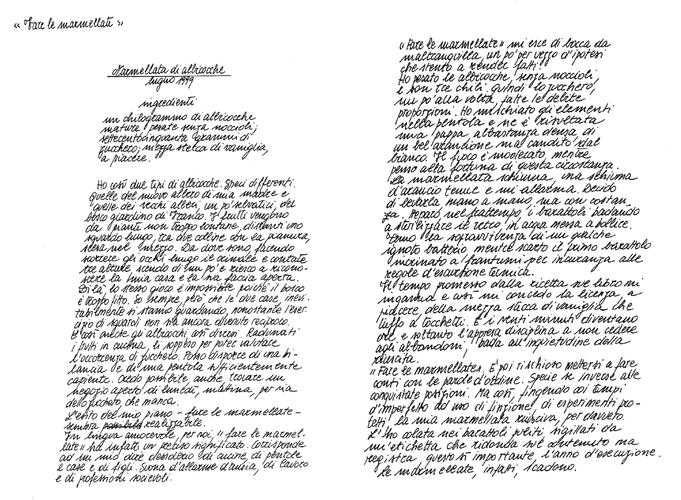 « Fare le marmellate »
Marmellata di albicocche
luglio 1999
ingredienti
un chilogrammo di albicocche
mature pesate senza noccioli;
settecentocinquanta grammi di
zucchero; mezza stecca di vaniglia,
a piacere.
Ho così due tipi di albicocche. Speci differenti.
Quelle del nuovo albero di mia madre e
quelle dei vecchi alberi, un po' selvatici, del
bosco giardino di Franco. I frutti vengono
da piante non troppo lontane, distanti uno
sguardo lungo, tra due colline con la pianura,
stesa nel mezzo. Da dove sono, facendo
scorrere gli occhi lungo il crinale e contate
tre alture scendo di un po' e riesco a ricono-
scere la mia casa e la sua faccia aperta.
Di là lo stesso gioco è impossibile poiché il bosco
è troppo fitto. So sempre, però che le due case, inevi-
tabilmente si stanno guardando, nonostante l'eser-
cizio di sguardi non sia ancora divenuto reciproco.
E così anche gli albicocchi, così diversi. Radunati
i frutti in cucina, li soppeso per poter valutare
l'occorrenza di zucchero. Penso di disporre di una bi-
lancia e di una pentola sufficientemente
capiente. Credo possibile, anche, trovare un
negozio aperto di lunedì, mattina, per via
dello zucchero, che manca.
L'esito del mio piano - fare le marmellate -
sembra possibile realizzabile.
In lingua amorevole, per noi, " fare le marmel-
late " ha infatti un preciso significato. Corrisponde
ad un mio dire desiderio di cucine, di pentole
e case e di figli. Suona d'allarme d'ansia, di lavoro
e di professioni società.
« Fare le marmellate » mi esce di bocca da
mal tranquilla, un po' per vezzo d'ipotesi
che stento a render fatti.
Ho pesato le albicocche, senza noccioli,
e son tre chili. Quindi lo zucchero,
un po' alla volta, fatte le debite
proporzioni. Ho mischiato gli elementi
nella pentola e ne è risultata
una pappa, abbastanza densa di
un bel arancione mal candito dal
bianco. Il fuoco è moderato, mentre
penso alla fortuna di questa circostanza.
La marmellata schiuma, una schiuma
d'arancio tenue e mi allarma. Decido
di levarla mano a mano, ma con costan-
za. Preparo nel frattempo i barattoli badando
a sterilizzare il vetro, in acqua messa a bollire.
Temo la sopravvivenza di un qualche
ignoto batterio mentre scarto il primo barattolo
rovinato a frantumi per incuranza alle
regole d'escursione termica.
Il tempo promesso dalla ricetta nel libro mi
inganna e così mi concedo la licenza a
piacere della mezza stecca di vaniglia che
tuffo a tocchetti. E i venti minuti diventano
ore e soltanto l'appresa disciplina a non cedere
agli abbandoni, bada all'inquietudine della
« Fare le marmellate ». È poi rischioso mettersi a fare
conti con le parole d'ordine. Specie se inverse alle
conquistate posizioni. Ma così, fingendo coi tempi
d'imperfetto ad uso di finzione, di esperimenti pro-
tetti, la mia marmellata riusciva, per davvero.
L'ho colata nei barattoli puliti sigillati da
un'etichetta che ridonda sul contenuto ma
registra, questo sì importante, l'anno d'esecuzione.
Le marmellate, infatti, scadono.